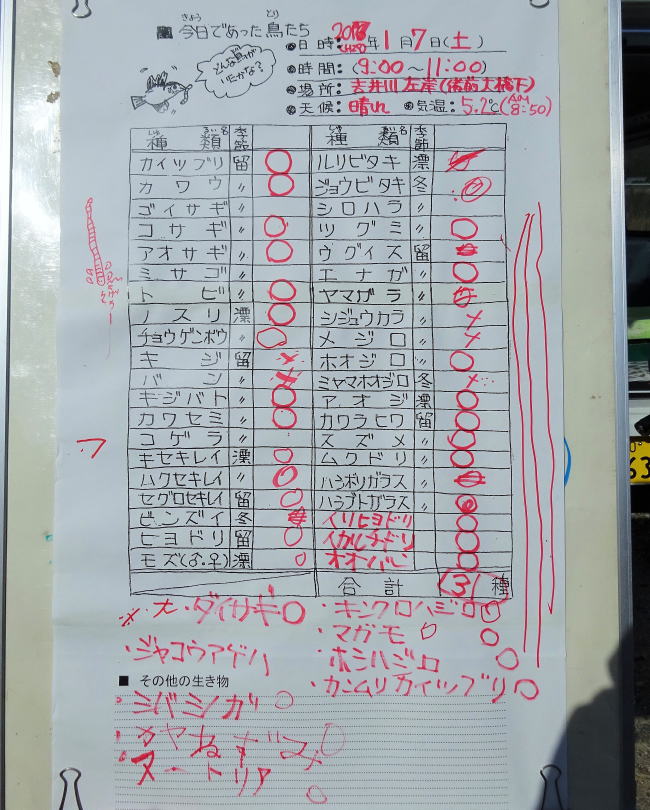 今日であった鳥たち
きょう とり
どんな鳥がいたかな?
日時: 2017 H29年1月7日(土)
時間: (9:00~11:00)
場所: 吉井川左岸(備前大橋下)
天候: 晴れ 気温: 5.2℃(AM 8:50)
種類名 季節 種類名 季節
カイツブリ 留 〇 ルリビタキ 漂
カワウ 〃 〇 ジョウビタキ 冬 〇
ゴイサギ 〃 シロハラ 〃
コサギ 〃 〇 ツグミ 〃 〇
アオサギ 〃 〇 ウグイス 留
ミサゴ 〃 エナガ 〃 〇
トビ 〃 〇 ヤマガラ 〃
ノスリ 漂 〇 シジュウカラ 〃 ×
チョウゲンボウ 〃 〇 メジロ 〃 ×
キジ 留 × ホオジロ 〃 〇
バン 〃 × ミヤマホオジロ 冬 ×
キジバト 〃 〇 アオジ 漂 〇
カワセミ 〃 〇 カワラヒワ 留 〇
コゲラ 〃 スズメ 〃 〇
キセキレイ 漂 〇 ムクドリ 〃 〇
ハクセキレイ 〃 〇 ハシボソガラス 〃
セグロセキレイ 留 〇 ハシブトガラス 〃
ビンズイ 冬 イソヒヨドリ 〇
ヒヨドリ 留 〇 イカルチドリ 〇
モズ(♂.♀) 漂 〇 オオバン 〇
合計 31 種
大・ダイサギ〇 ・キンクロハジロ〇
・マガモ 〇
・ジャコウアゲハ ・ホシハジロ 〇
・カンムリカイツブリ〇
■ その他の生き物
・シバシガ 〇
・カヤねずみ 〇
・ヌートリア 〇
63